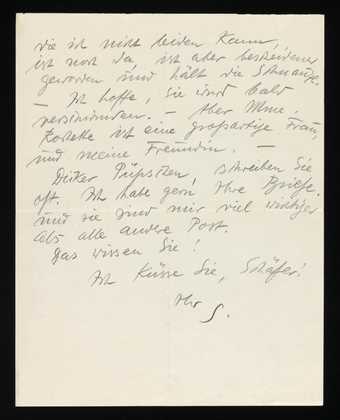 die ich nicht leiden kann,
ist noch da, ist aber bescheidener
geworden und hält die Schnauze.
— Ich hoffe, sie wird bald
verschwinden. — Aber Mme.
ist eine großartige Frau,
und meine Freundin. —
Dicker Püpschen, schreiben Sie
oft. Ich habe gern Ihre Briefe.
und sie sind mir viel wichtiger
als alle andere Post.
Das wissen Sie!
Ich küsse Sie, Schäfer!
Ihr S.